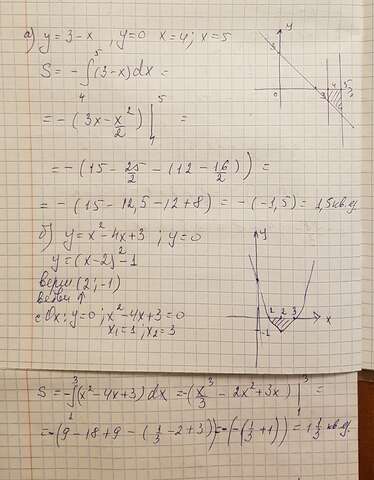 а) y = 3-x , y=0 x=4; x=5
S = -∫₄⁵(3-x)dx =
= -(3x - x²/2)|₄⁵ =
= -(15 - 25/2 - (12 - 16/2)) =
= -(15 - 12,5 - 12 + 8) = -(-1,5) = 1,5 кв.ед.
б) y = x² - 4x + 3 ; y=0
y = (x-2)² - 1
верш (2; -1)
ветви ↑
с Ox: y=0; x² - 4x + 3 = 0
x₁=1; x₂=3
y
3
4
5
0
y
1 2 3
x
-1
S = -∫₁³(x² - 4x + 3)dx = -(x³/3 - 2x² + 3x)|₁³ =
= -(9 - 18 + 9 - (1/3 - 2 + 3)) = -(-(1/3 + 1)) = 1 1/3 кв.ед.